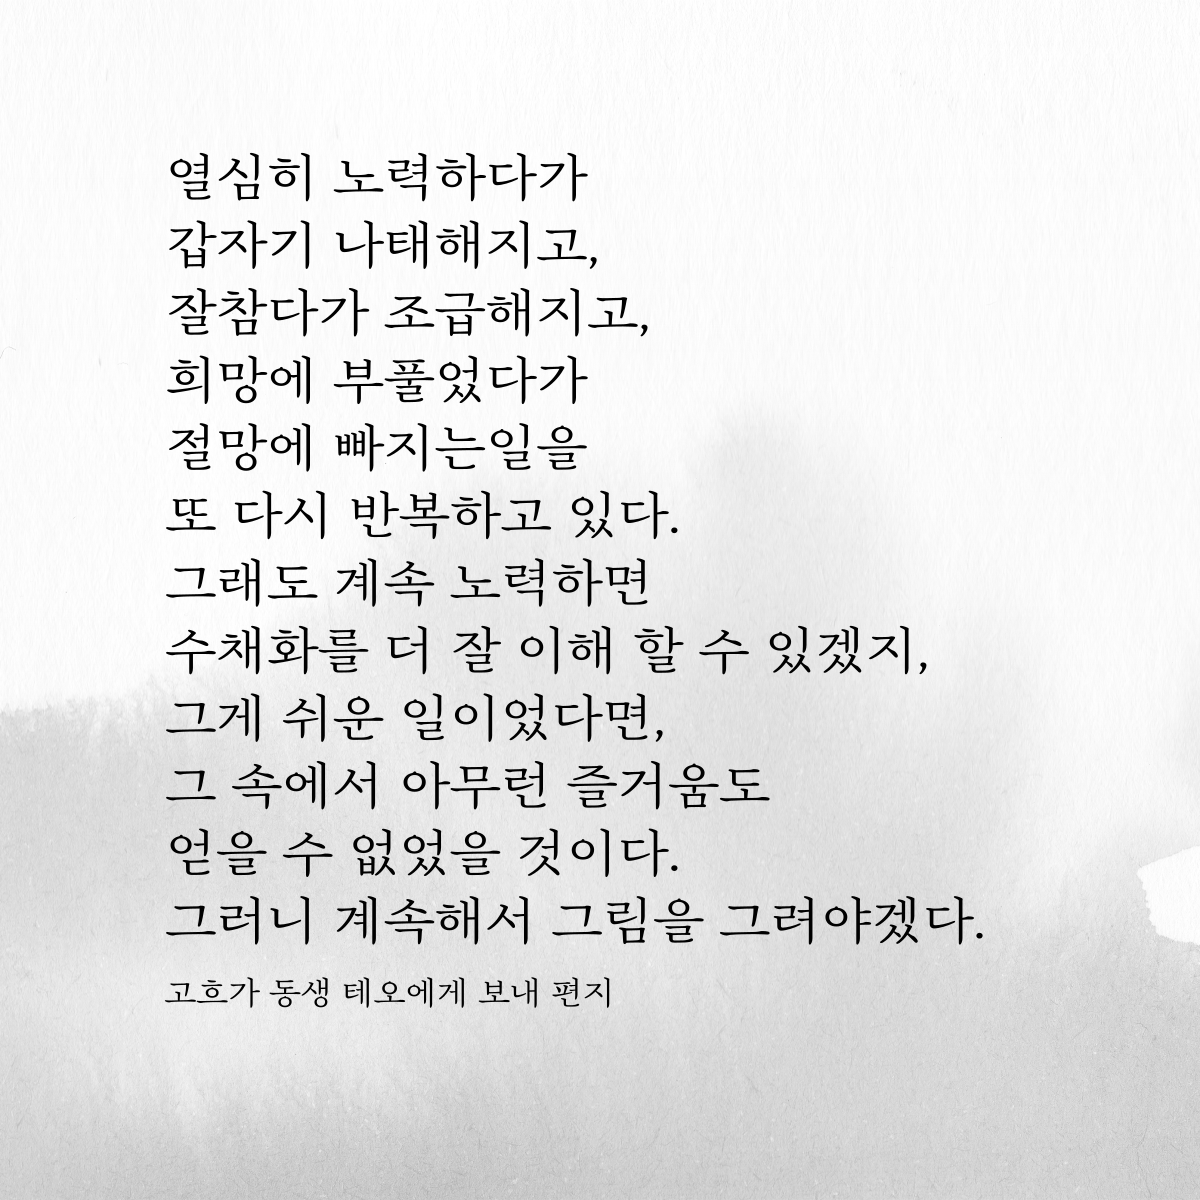 열심히 노력하다가
갑자기 나태해지고,
잘참다가 조급해지고,
희망에 부풀었다가
절망에 빠지는일을
또 다시 반복하고 있다.
그래도 계속 노력하면
수채화를 더 잘 이해 할 수 있겠지,
그게 쉬운 일이었다면,
그 속에서 아무런 즐거움도
얻을 수 없었을 것이다.
그러니 계속해서 그림을 그려야겠다.
고흐가 동생 테오에게 보내 편지